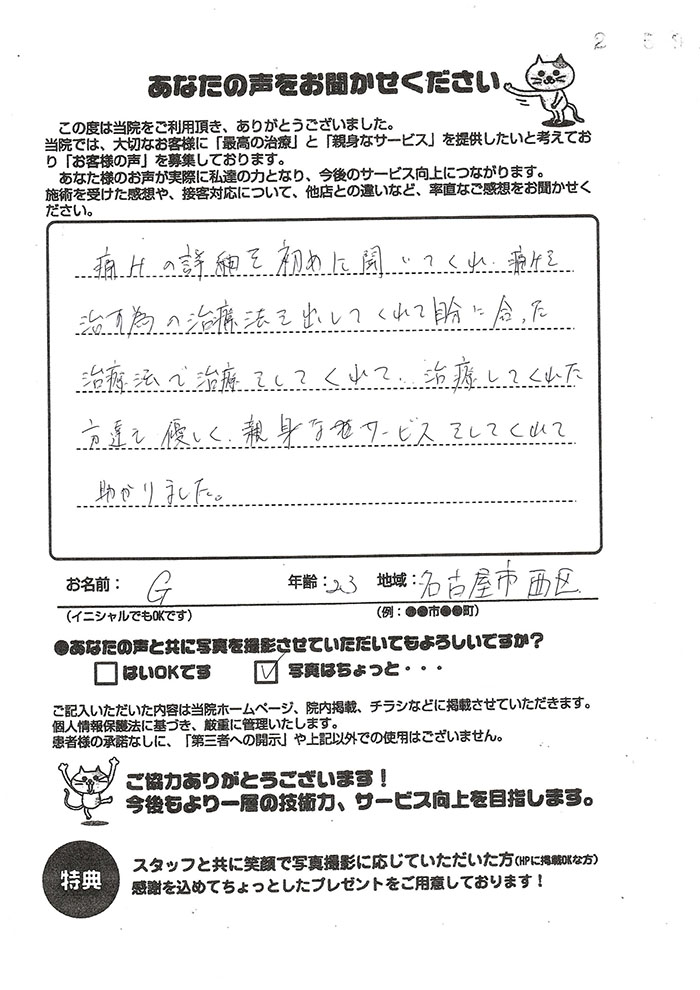 あなたの声をお聞かせください
この度は当院をご利用頂き、ありがとうございました。
当院では、大切なお客様に「最高の治療」と「親身なサービス」を提供したいと考えてお
り「お客様の声」を募集しております。
あなた様のお声が実際に私達の力となり、今後のサービス向上につながります。
施術を受けた感想や、接客対応について、他店との違いなど、率直なご感想をお聞かせく
ださい。
痛みの詳細を初めに聞いてくれ、痛みを
治す為の治療法を出してくれて自分に合った
治療法で治療をしてくれて、治療してくれた
方達も優しく、親身なサービスをしてくれて
助かりました。
お名前： G 年齢：23 地域：名古屋市西区
（イニシャルでもOKです） （例：●●市●●町）
●あなたの声と共に写真を撮影させていただいてもよろしいですか？
□はいOKです ☑写真はちょっと・・・
ご記入いただいた内容は当院ホームページ、院内掲載、チラシなどに掲載させていただきます。
個人情報保護法に基づき、厳重に管理いたします。
患者様の承諾なしに、「第三者への開示」や上記以外での使用はございません。
ご協力ありがとうございます！
今後もより一層の技術力、サービス向上を目指します。
特典
スタッフと共に笑顔で写真撮影に応じていただいた方（HPに掲載OKな方）
感謝を込めてちょっとしたプレゼントをご用意しております！